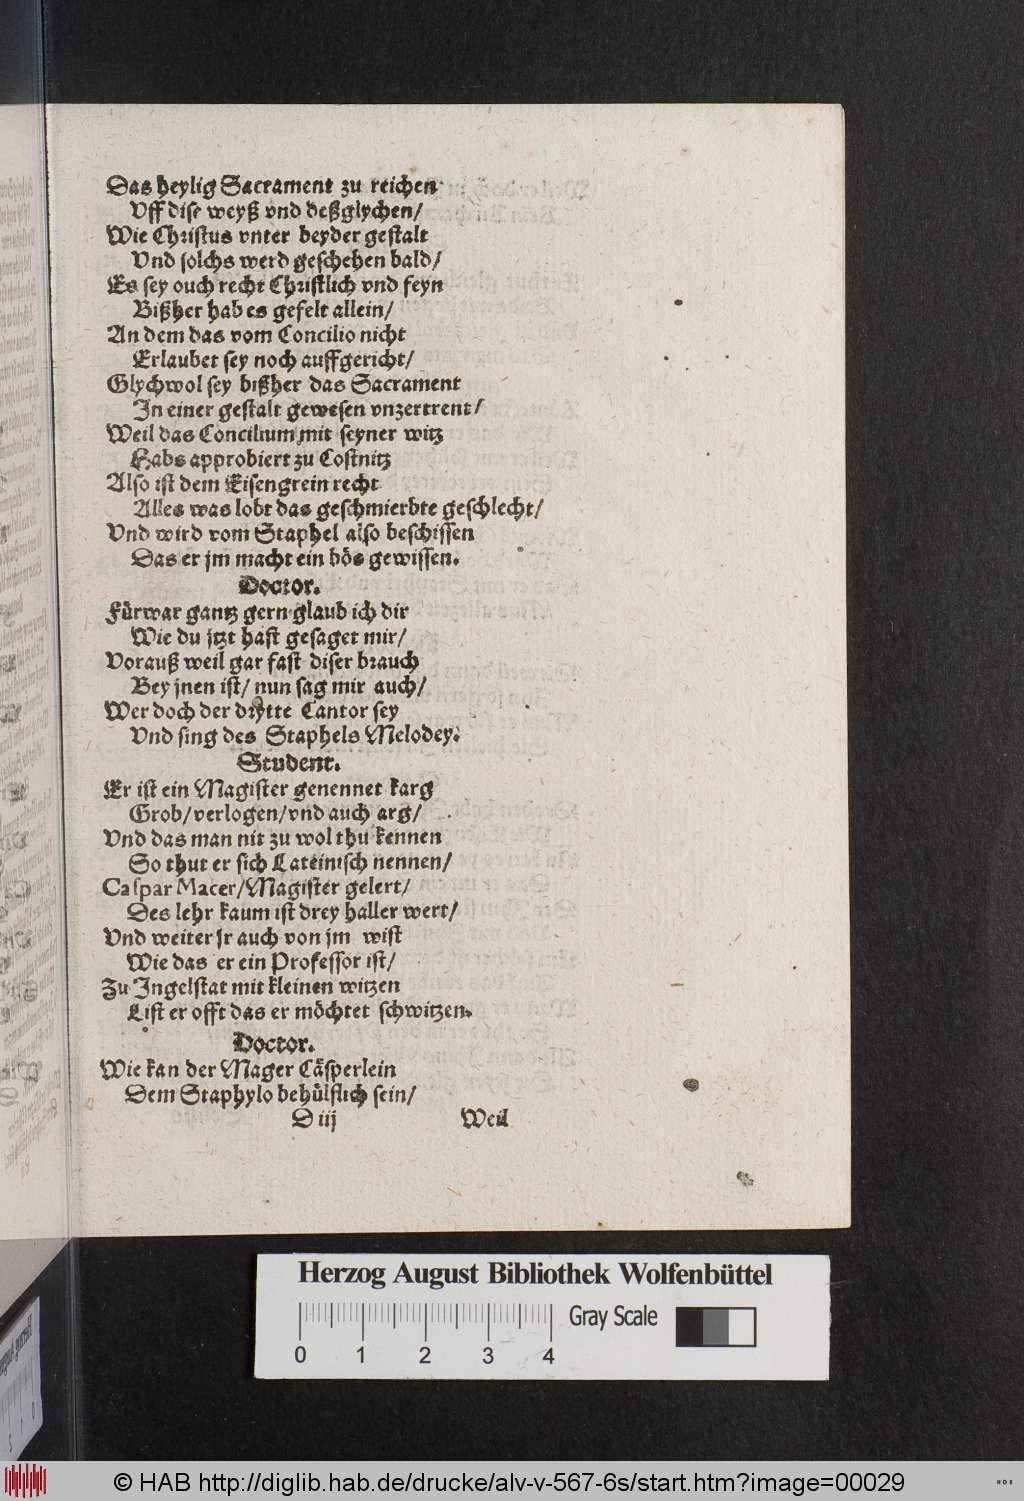 Das heylig Sacrament zu reichen
Vff dise weyß vnd deßglychen/
Wie Christus vnter beyder gestalt
Vnd solchs werd geschehen bald/
Es sey ouch recht Christlich vnd feyn
Bißher hab es gefelt allein/
An dem das vom Concilio nicht
Erlaubet sey noch auffgericht/
Glychwol sey bißher das Sacrament
In einer gestalt gewesen vnzertrent/
Weil das Concilium mit seyner witz
Habs approbiert zu Costnitz
Also ist dem Eisengrein recht
Alles was lobt das geschmierbte geschlecht/
Vnd wird vom Staphel also beschissen
Das er jm macht ein bös gewissen.
Doctor.
Fürwar gantz gern glaub ich dir
Wie du jtzt hast gesaget mir/
Vorauß weil gar fast diser brauch
Bey jnen ist/ nun sag mir auch/
Wer doch der drytte Cantor sey
Vnd sing des Staphels Melodey.
Student.
Er ist ein Magister genennet karg
Grob/verlogen/vnd auch arg/
Vnd das man nit zu wol thu kennen
So thut er sich Lateinisch nennen/
Caspar Macer/Magister gelert/
Des lehr kaum ist drey haller wert/
Vnd weiter jr auch von jm wist
Wie das er ein Professor ist/
Zu Ingelstat mit kleinen witzen
List er offt das er möchtet schwitzen.
Doctor.
Wie kan der Mager Cäsperlein
Dem Staphylo behülflich sein/
D iij Weil
Herzog August Bibliothek Wolfenbüttel
Gray Scale
0 1 2 3 4
© HAB http://diglib.hab.de/drucke/alv-v-567-6s/start.htm?image=00029